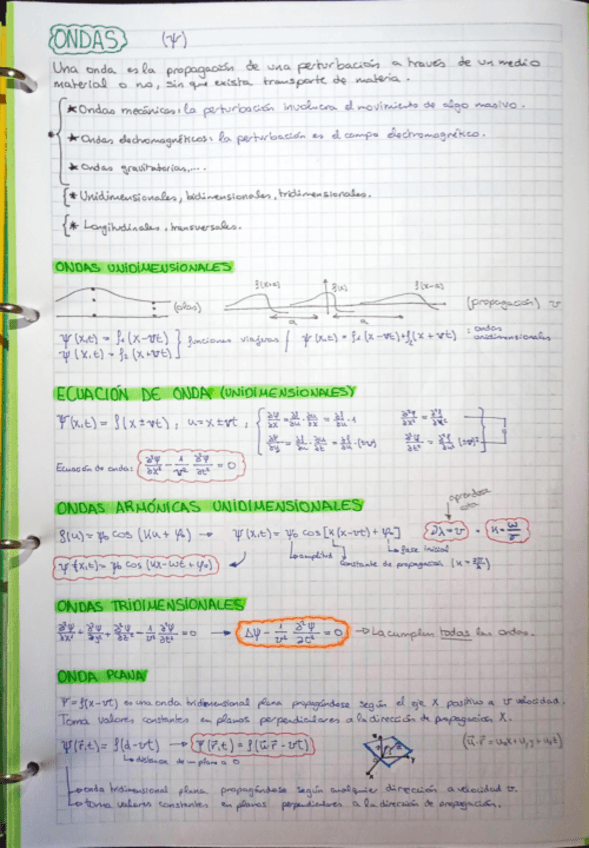 ONDAS (ψ)
Una onda es la propagación de una perturbación a través de un medio
material o no, sin que exista transporte de materia.
* Ondas mecánicas: la perturbación involucra el movimiento de algo masivo.
* Ondas electromagnéticas: la perturbación es el campo electromagnético.
* Ondas gravitatorias,...
* Unidimensionales, bidimensionales, tridimensionales.
* Longitudinales, transversales.
ONDAS UNIDIMENSIONALES
(olas) f(x+a) f(x) f(x-a) a a (propagación) v
ψ(x,t) = f₁(x-vt) } funciones viajeras / ψ(x,t) = f₁(x-vt)+f₂(x+vt) : ondas unidimensionales
ψ(x,t) = f₂(x+vt)
ECUACIÓN DE ONDA (UNIDIMENSIONALES)
Ψ(x,t) = f(x±vt), u=x±vt,
∂Ψ/∂x = ∂f/∂u · ∂u/∂x = ∂f/∂u · 1
Ecuación de onda: ∂²Ψ/∂x² - 1/v² ∂²Ψ/∂t² = 0
ONDAS ARMÓNICAS UNIDIMENSIONALES
f(u) = ψ₀ cos (ku + φ₀) → ψ(x,t) = ψ₀ cos[k(x-vt) + φ₀]
amplitud
fase inicial
constante de propagación
ψ(x,t) = ψ₀ cos (kx-ωt + φ₀)
ONDAS TRIDIMENSIONALES
∂²Ψ/∂x² + ∂²Ψ/∂y² + ∂²Ψ/∂z² - 1/v² ∂²Ψ/∂t² = 0 → Δψ - 1/v² ∂²Ψ/∂t² = 0 → La cumplen todas las ondas.
ONDA PLANA
Ψ = f(x-vt) es una onda tridimensional plana propagándose según el eje X positivo a v velocidad.
Toma valores constantes en planos perpendiculares a la dirección de propagación X.
Ψ(r⃗,t) = f(d-vt) → Ψ(r⃗,t) = f(u⃗·r⃗ - vt) (u⃗·r⃗ = uₓx + u_y y + u_z z)
distancia de un plano a O
onda tridimensional plana propagándose según cualquier dirección a velocidad v.
toma valores constantes en planos perpendiculares a la dirección de propagación.